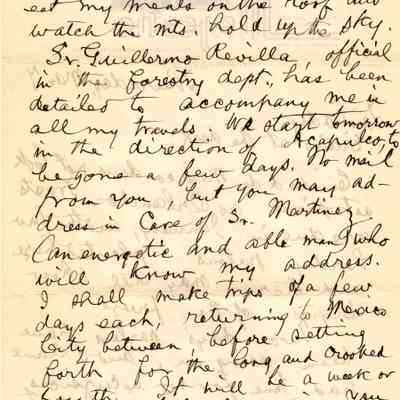 eat my meals on the roof and
watch the mts. hold up the sky.
Sr. Guillermo Revilla, official
in the forestry dept., has been
detailed to accompany me in
all my travels. We start tomorrow
in the direction of Acapulco, to
be gone a few days. No mail
from you, but you may ad-
dress in Care of Sr. Martinez
(an energetic and able man) who
will know my address.
I shall make trips of a few
days each, returning to Mexico
City between, before setting
forth for the long and crooked
It will be a week or
you